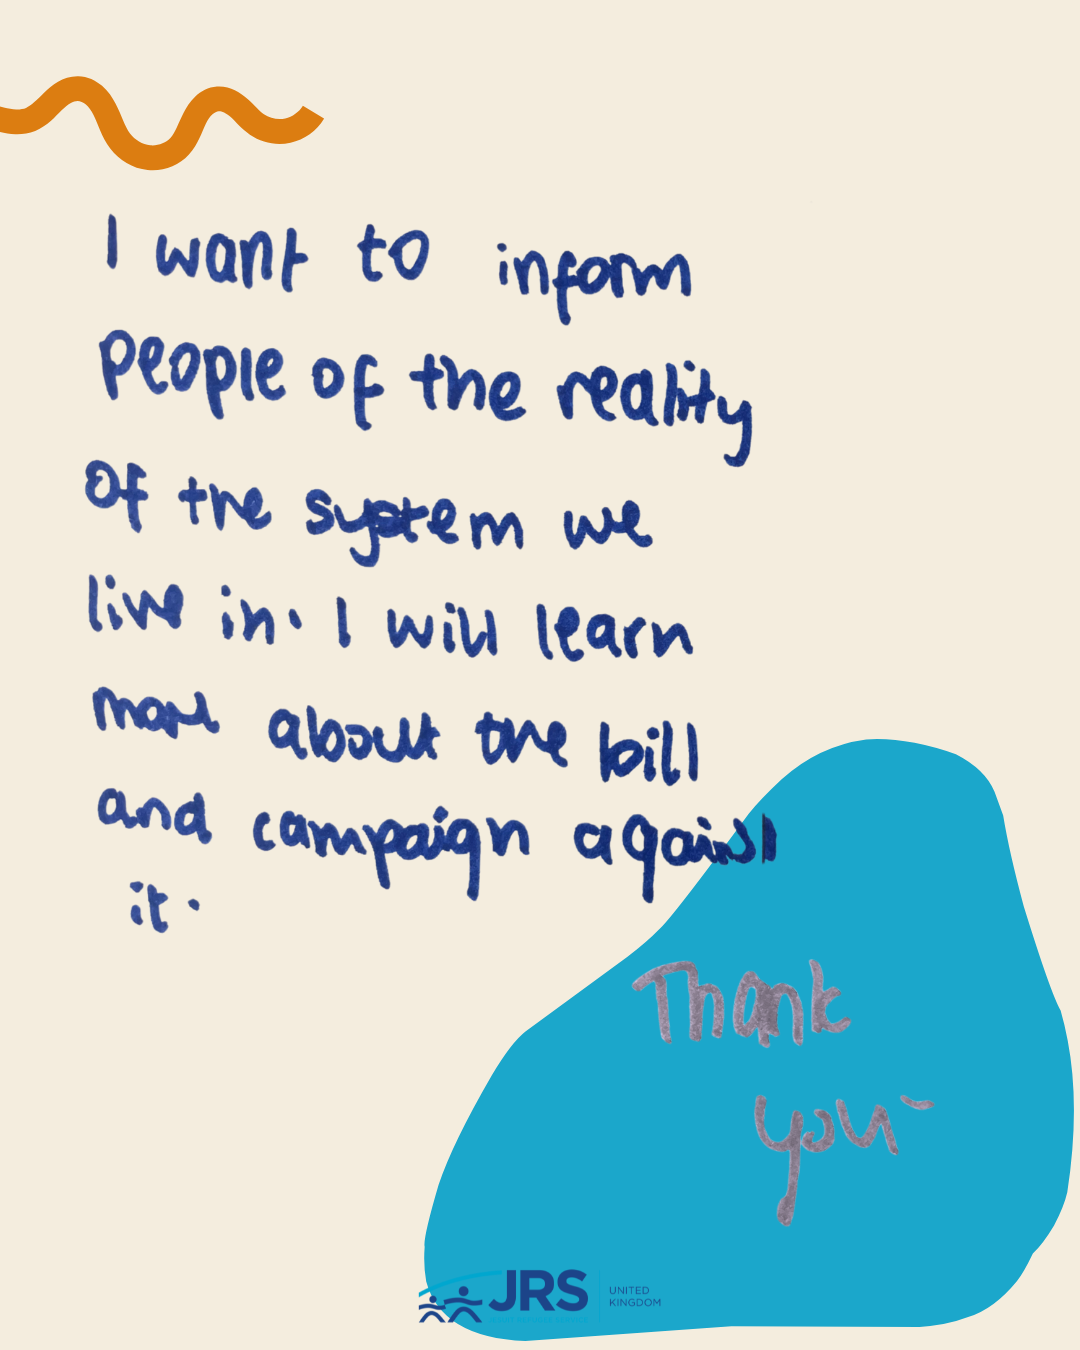 I want to inform
people of the reality
of the system we
live in. I will learn
more about the bill
and campaign against
it.
Thank
you
JRS
UNITED
KINGDOM